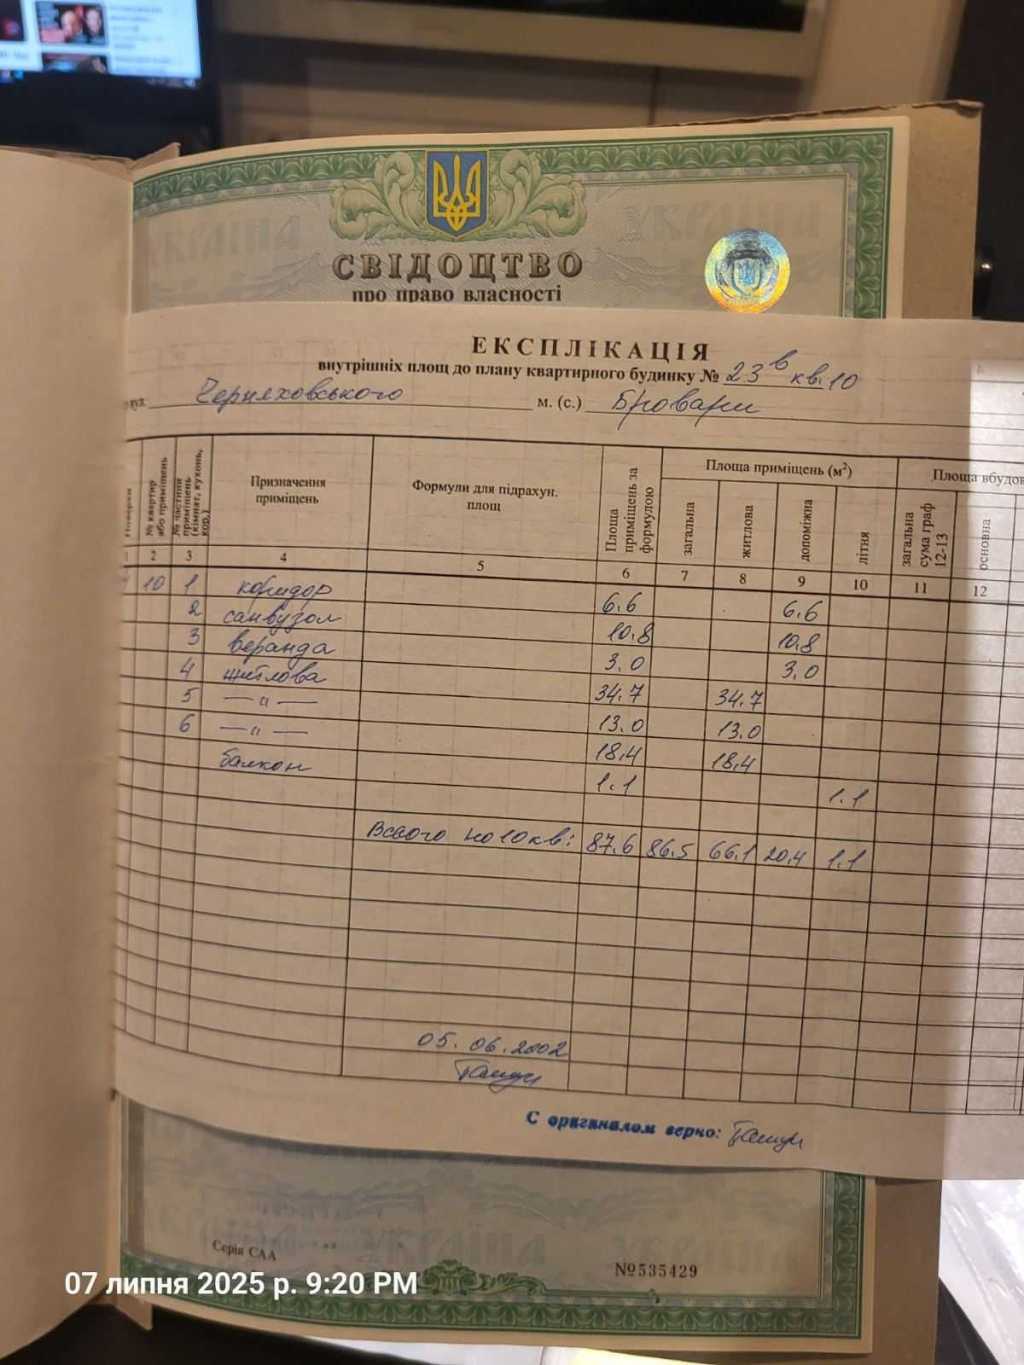 УКРАЇНА УКРАЇНА
СВІДОЦТВО
про право власності
ЕКСПЛІКАЦІЯ
внутрішніх площ до плану квартирного будинку № 23в кв.10
вул. Черняховського м. (с.) Бровари
Поверхи № квартир або приміщень № частини приміщень (кімнат, кухонь, кор.) Призначення приміщень Формули для підрахун. площ Площа приміщень за формулою Площа приміщень (м²) Площа вбудов
загальна житлова допоміжна літня загальна сума граф 12-13 основна
1 2 3 4 5 6 7 8 9 10 11 12
10 1 коридор 6.6 6.6
2 санвузол 10.8 10.8
3 веранда 3.0 3.0
4 житлова 34.7 34.7
5 —"— 13.0 13.0
6 —"— 18.4 18.4
балкон 1.1 1.1
Всього по 10 кв: 87.6 86.5 66.1 20.4 1.1
05.06.2002
С оригиналом верно:
УКРАЇНА
Серія САА
№535429
07 липня 2025 р. 9:20 PM